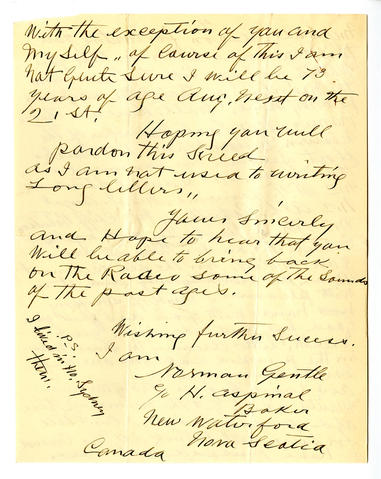 With the exception of you and
My Self ,, of Course of this I am
Not Quite Sure I will be 73
years of age Aug, Next on the
21 St.
Hoping you will
pardon this Screed
as I am not used to writing
Long letters ,,
Yours Sincirly
and Hope to hear that you
Will be able to bring back
on the Radio some of the Sounds
of the past ages.
Wishing further Sucess.
I am
Norman Gentle
c/o H. Aspinal
Baker
New Waterford
Nova Scotia
Canada
P.S.
I lived in No. Sydney
then.